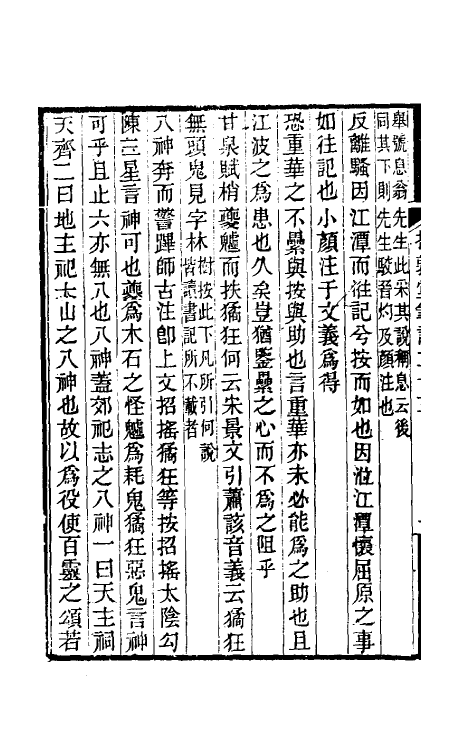 舉號息翁先生此采其說稱息云後
同其下則先生駮晉灼及顏注也
反離騷因江潭而往記兮按而如也因沿江潭懷屈原之事
如往記也小顏注于文義爲得
恐重華之不纍與按與助也言重華亦未必能爲之助也且
江波之爲患也久矣豈猶鑒纍之心而不爲之阻乎
甘泉賦梢夔魖而抶獝狂何云宋景文引蕭該音義云獝狂
無頭鬼見字林樹按此下凡所引何說
皆讀書記所不載者
八神奔而警蹕師古注卽上文招搖獝狂等按招搖太陰勾
陳三星言神可也夔爲木石之怪魖爲耗鬼獝狂惡鬼言神
可乎且止六亦無八也八神蓋郊祀志之八神一曰天主祠
天齊二曰地主祀太山之八神也故以爲役使百靈之頌若